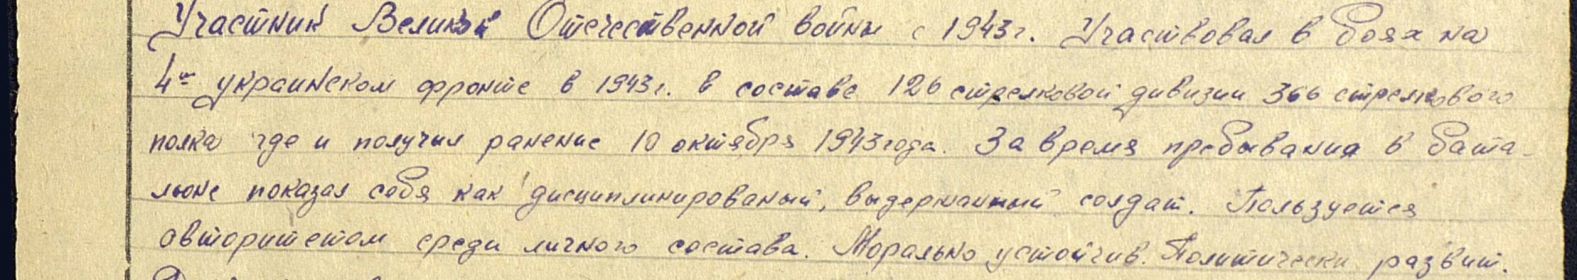 Участник Великой Отечественной войны с 1943 г. Участвовал в боях на
4м украинском фронте в 1943 г. в составе 126 стрелковой дивизии 366 стрелкового
полка где и получил ранение 10 октября 1943 года. За время пребывания в бата-
льоне показал себя как дисциплинированый, выдержанный солдат. Пользуется
авторитетом среди личного состава. Морально устойчив. Политически развит.